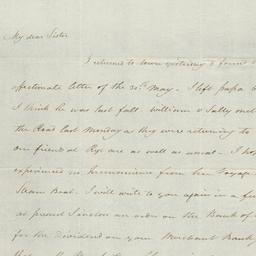 My dear Sister
I returned to town yesterday & found
spectionate letter of the 30th May. I left papa
I think he was last fall. William & Sally met
the Road last Monday as they were returning to
our friends at Rye are as well as usual. I hope
experienced no Inconvenience from her Voyage
Steam Boat. I will write to you again in a few
as present Sanction an order on the Bank of
for the Dividend on your Merchant Bank